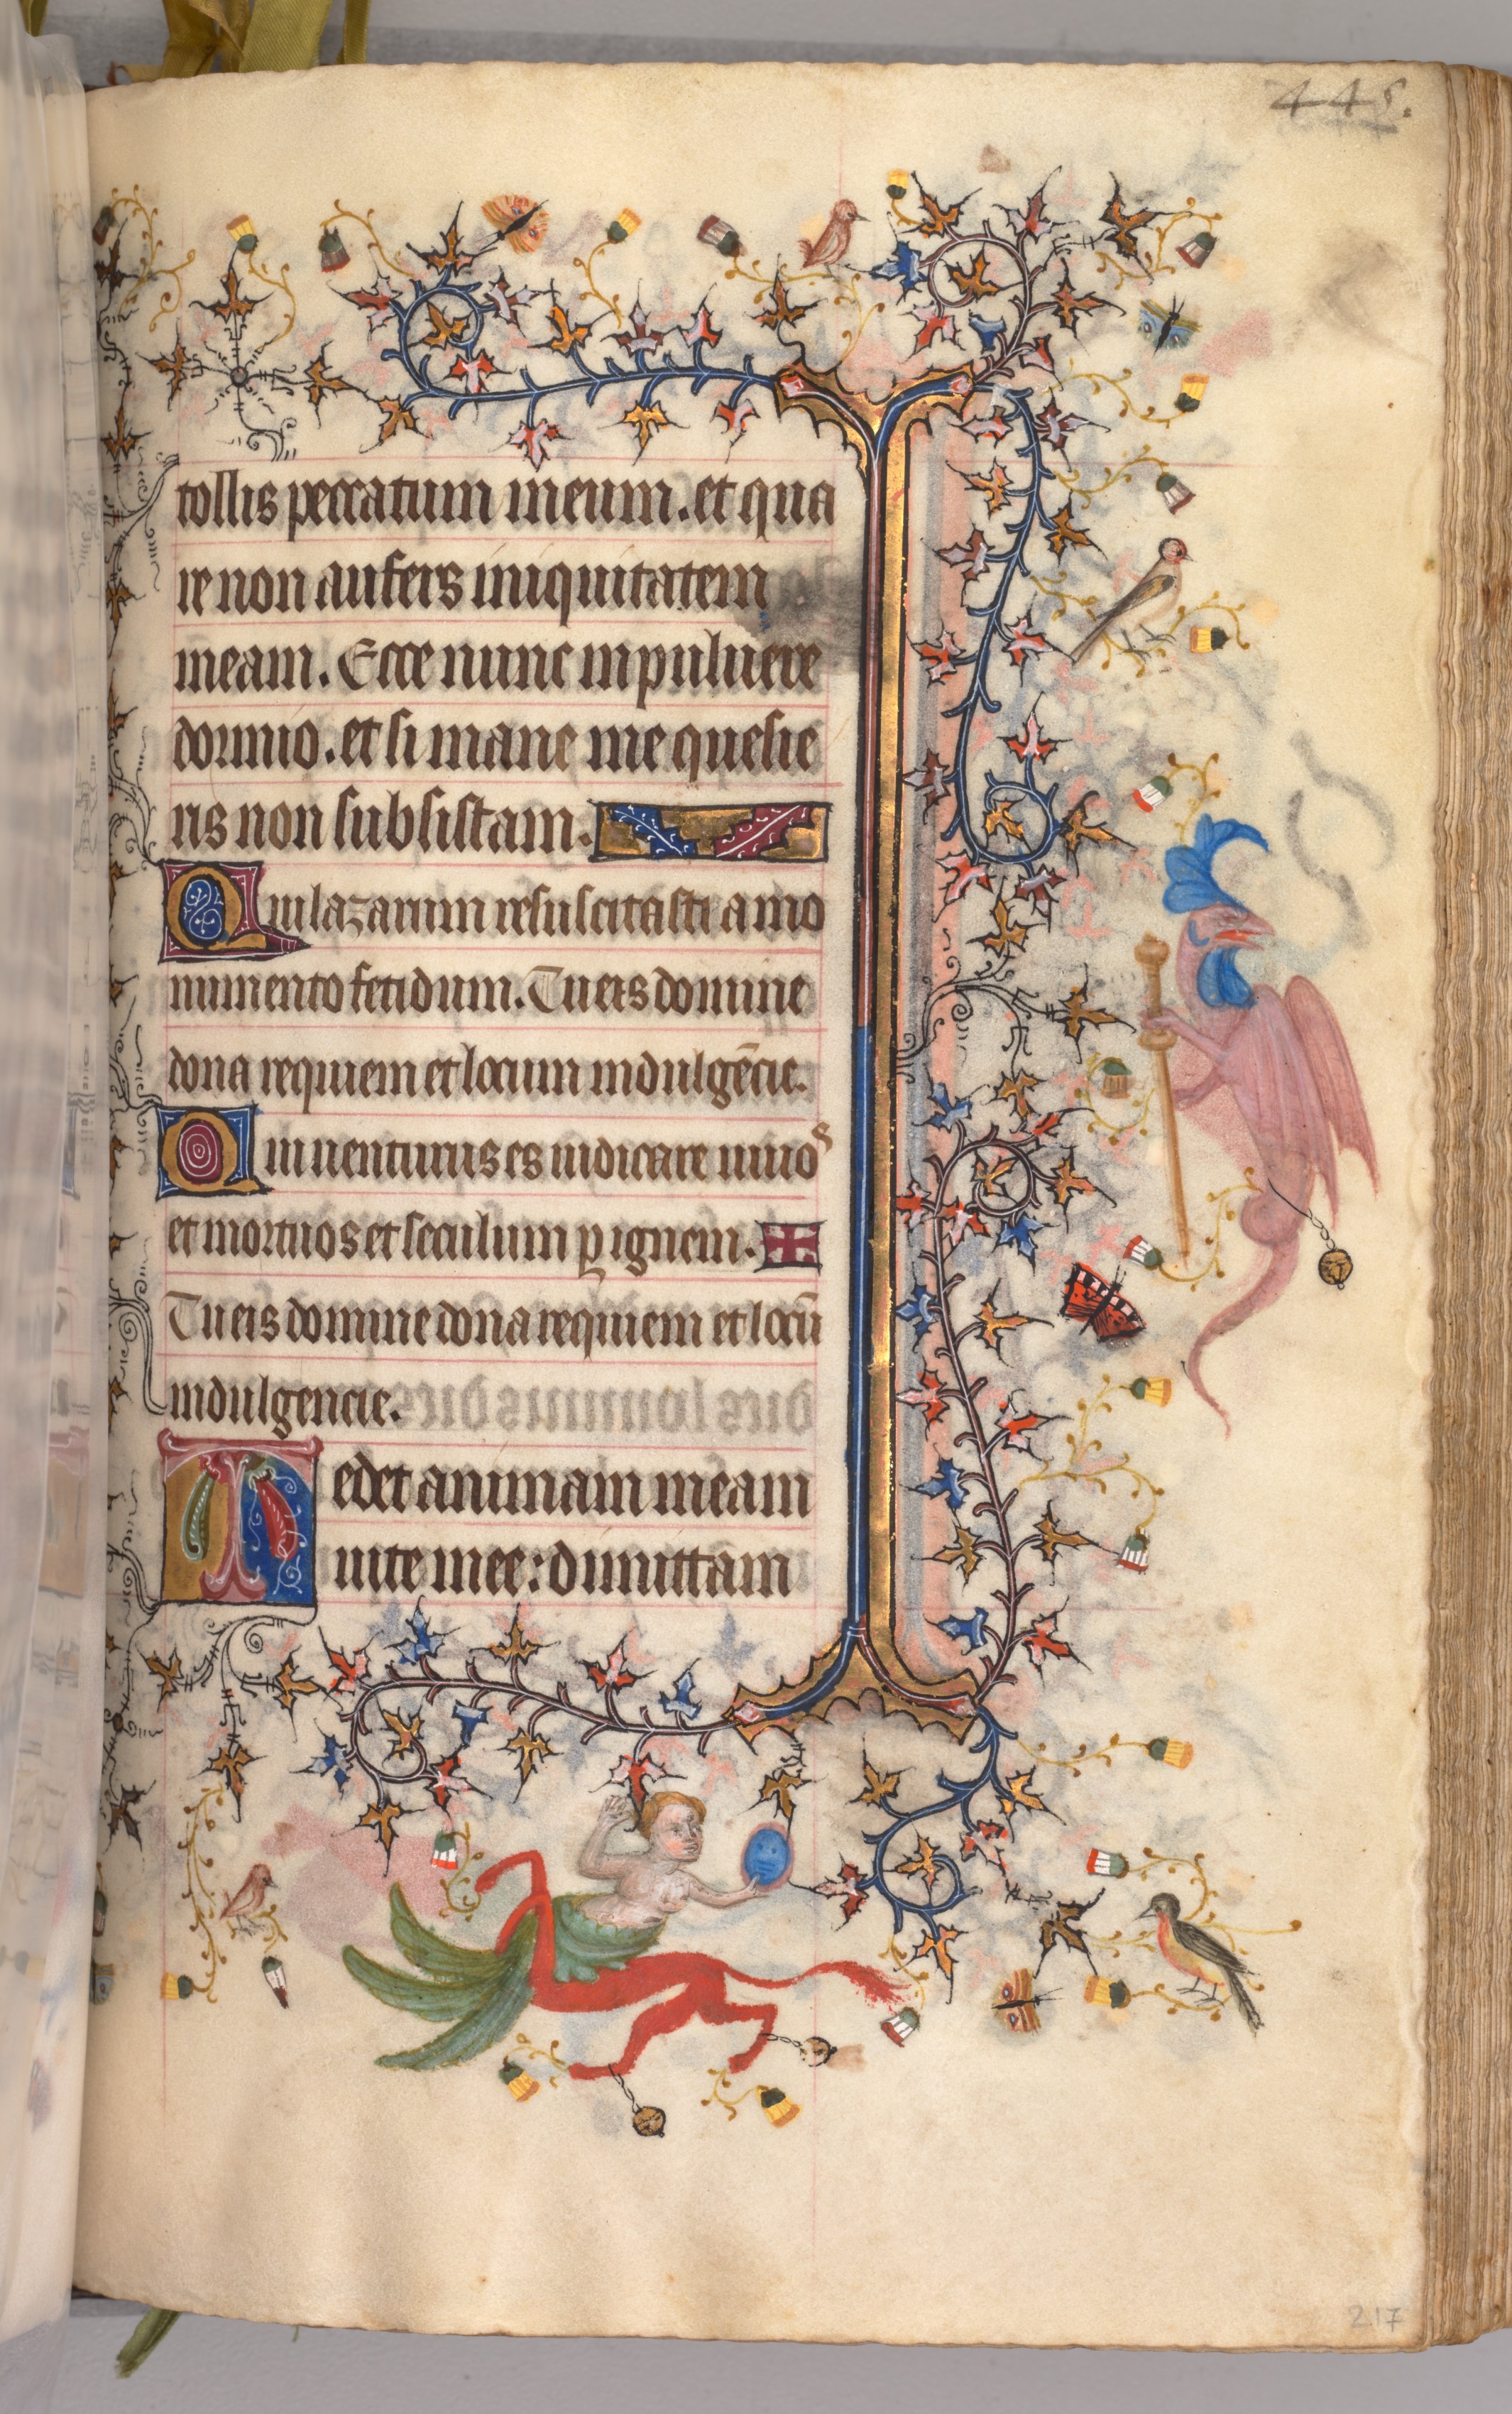 445.
tollis peccatum meum. et qua
re non aufers iniquitatem
meam. Ecce nunc in puluere
dormio. et si mane me quesie
ris non subsistam.
Qui lazarum resuscitasti a mo
numento fetidum. Tu eis domine
dona requiem et locum indulgēcie.
Qui uenturus es iudicare uiuos
et mortuos et seculum ꝑ ignem.
Tu eis domine dona requiem et locū
indulgencie.
Tedet animam meam
uite mee: dimittam
217